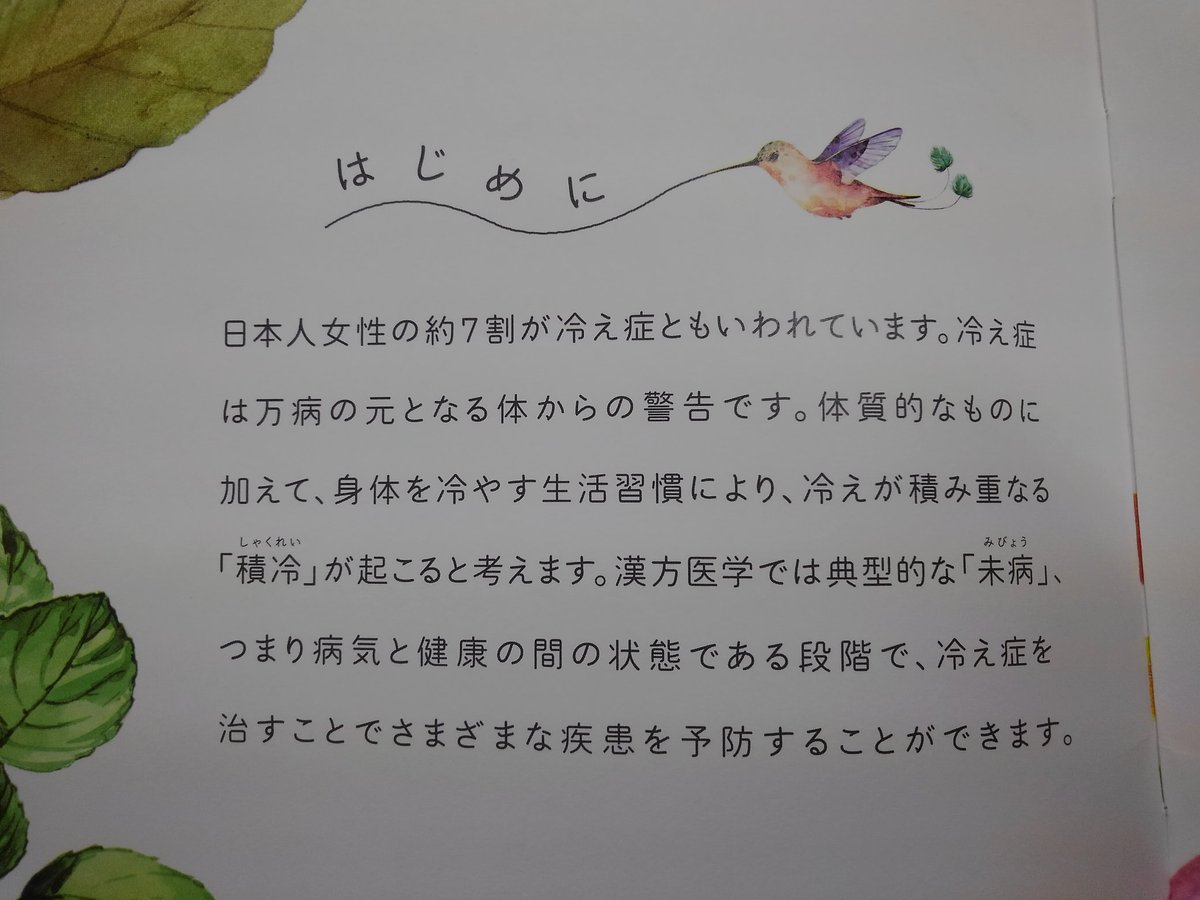 はじめに
日本人女性の約7割が冷え症ともいわれています。冷え症
は万病の元となる体からの警告です。体質的なものに
加えて、身体を冷やす生活習慣により、冷えが積み重なる
しゃくれい みびょう
「積冷」が起こると考えます。漢方医学では典型的な「未病」、
つまり病気と健康の間の状態である段階で、冷え症を
治すことでさまざまな疾患を予防することができます。